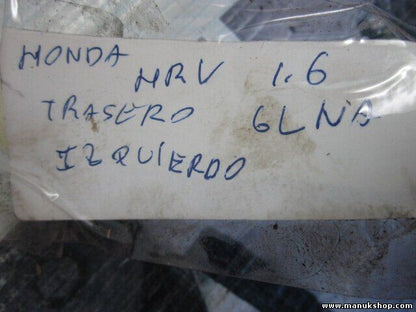 HONDA HRV 1.6
TRASERO GLNA
IZQUIERDO
www.manukshop.com